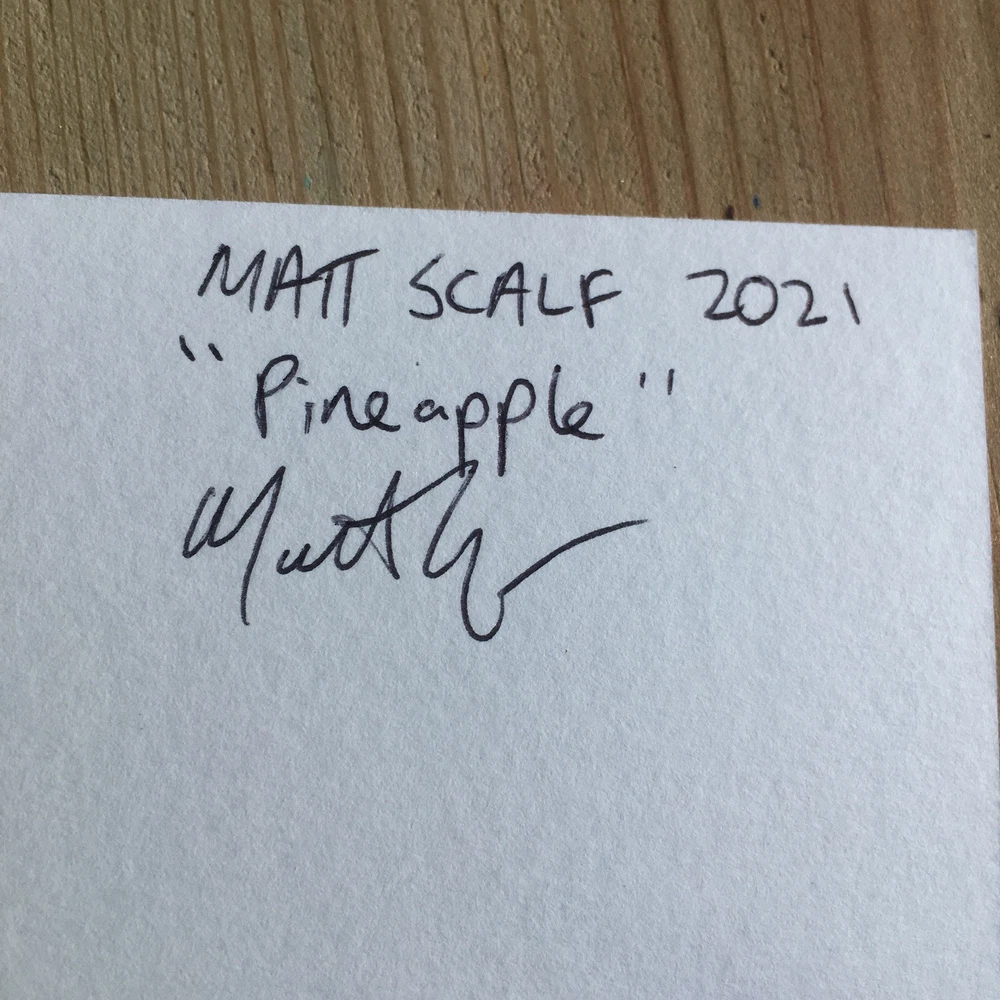 MATT SCALF 2021
"Pineapple"